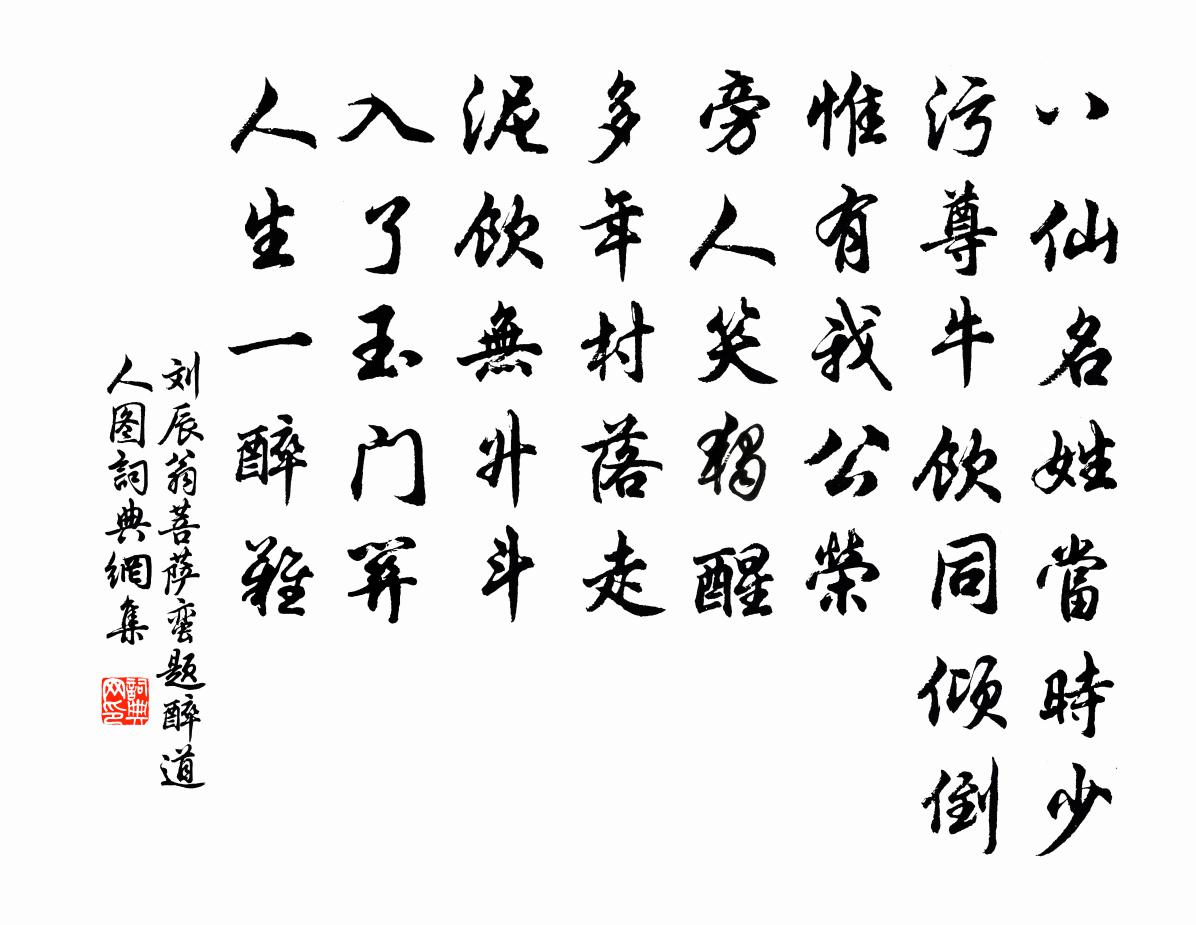 八仙名姓當時少
污尊牛飲同傾倒
惟有我公榮
旁人笑獨醒
多年村落走
泥飲無升斗
入了玉门关
人生一醉難
刘辰翁菩萨蛮题醉道
人图詞典網集
詞典
网印